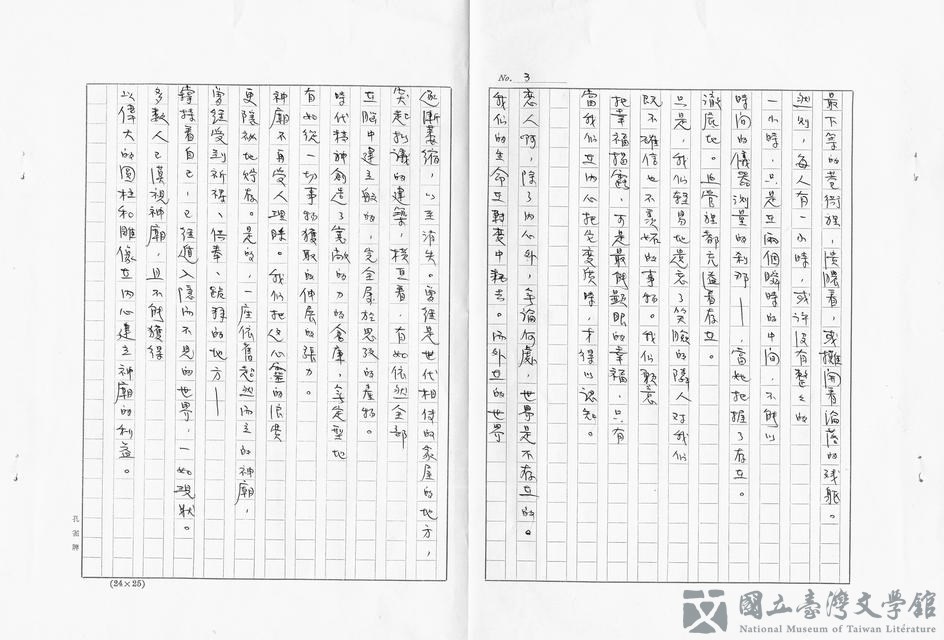 No. 3
最下等的巷街裡，潰膿着，或攤開着淪落的殘軀。
然則，每人有一小時，或許沒有整整的
一小時，只是在兩個瞬時的中間，不能以
時間的儀器測量的剎那——，當她把握了存在。
澈底地。血管裡都充溢着存在。
只是，我們輕易地遺忘了笑臉的隣人對我們
既不確信也不羨妒的事物。我們願意
把幸福揭露，可是最們顯眼的幸福，只有
當我們在內心把它變質時，才得以認知。
戀人啊，除了內心外，無論何處，世界是不存在的。
我們的生命在轉變中耗去。而外在的世界
逐漸萎縮，以至消失。曾經是世代相傳的家屋的地方，
突起擬議的建築，橫亘着，有如依然全部
在腦中建立般的，完全屬於思攷的產物。
時代精神創造了寬敞的力的倉庫，無定型地
有如從一切事物獲取的伸展的張力。
神廟不再受人理睬。我們把這心靈的浪費
更隱祕地貯存。是的，一座依舊超然而立的神廟，
曾經受到祈禱、侍奉、跪拜的地方——
管持着自己，已經遁入隱而不見的世界，一如現狀。
多數人已漠視神廟，且不能獲得
以偉大的圓柱和雕像在內心建立神廟的利益。
孔雀牌
(24×25)
國立臺灣文學館
National Museum of Taiwan Literature